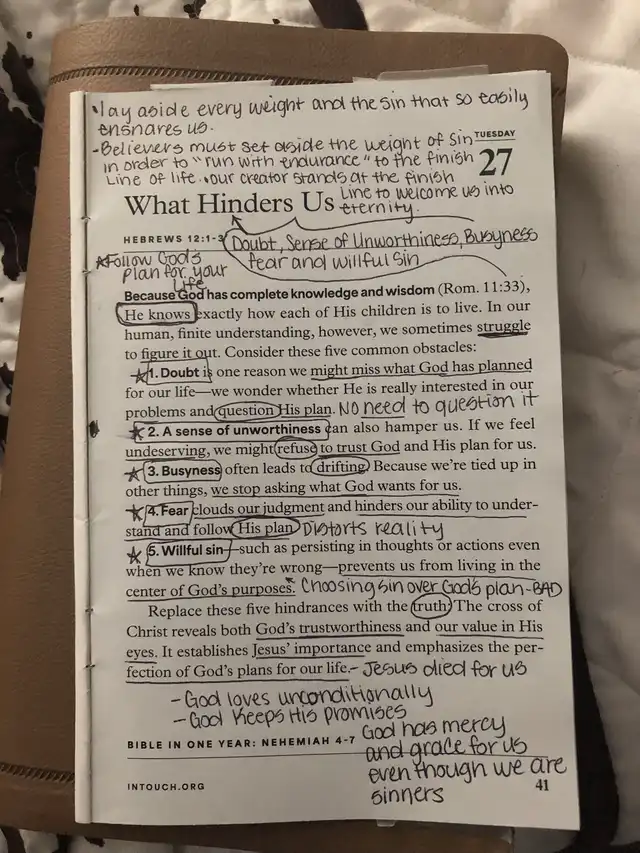 •lay aside every weight and the sin that so easily
ensnares us.
-Believers must set aside the weight of sin
in order to "run with endurance" to the finish
line of life. •our creator stands at the finish
line to welcome us into
eternity.
TUESDAY
27
What Hinders Us
HEBREWS 12:1-3
Doubt, Sense of Unworthiness, Busyness
fear and willful sin
★Follow God's
plan for your
life
Because God has complete knowledge and wisdom (Rom. 11:33),
He knows exactly how each of His children is to live. In our
human, finite understanding, however, we sometimes struggle
to figure it out. Consider these five common obstacles:
★1. Doubt is one reason we might miss what God has planned
for our life—we wonder whether He is really interested in our
problems and question His plan. No need to question it
★2. A sense of unworthiness can also hamper us. If we feel
undeserving, we might refuse to trust God and His plan for us.
★3. Busyness often leads to drifting. Because we're tied up in
other things, we stop asking what God wants for us.
★4. Fear clouds our judgment and hinders our ability to under-
stand and follow His plan. Distorts reality
★5. Willful sin—such as persisting in thoughts or actions even
when we know they're wrong—prevents us from living in the
center of God's purposes. Choosing sin over God's plan-BAD
Replace these five hindrances with the truth: The cross of
Christ reveals both God's trustworthiness and our value in His
eyes. It establishes Jesus' importance and emphasizes the per-
fection of God's plans for our life.- Jesus died for us
- God loves unconditionally
- God keeps His promises
God has mercy
and grace for us
even though we are
sinners
BIBLE IN ONE YEAR: NEHEMIAH 4-7
INTOUCH.ORG
41